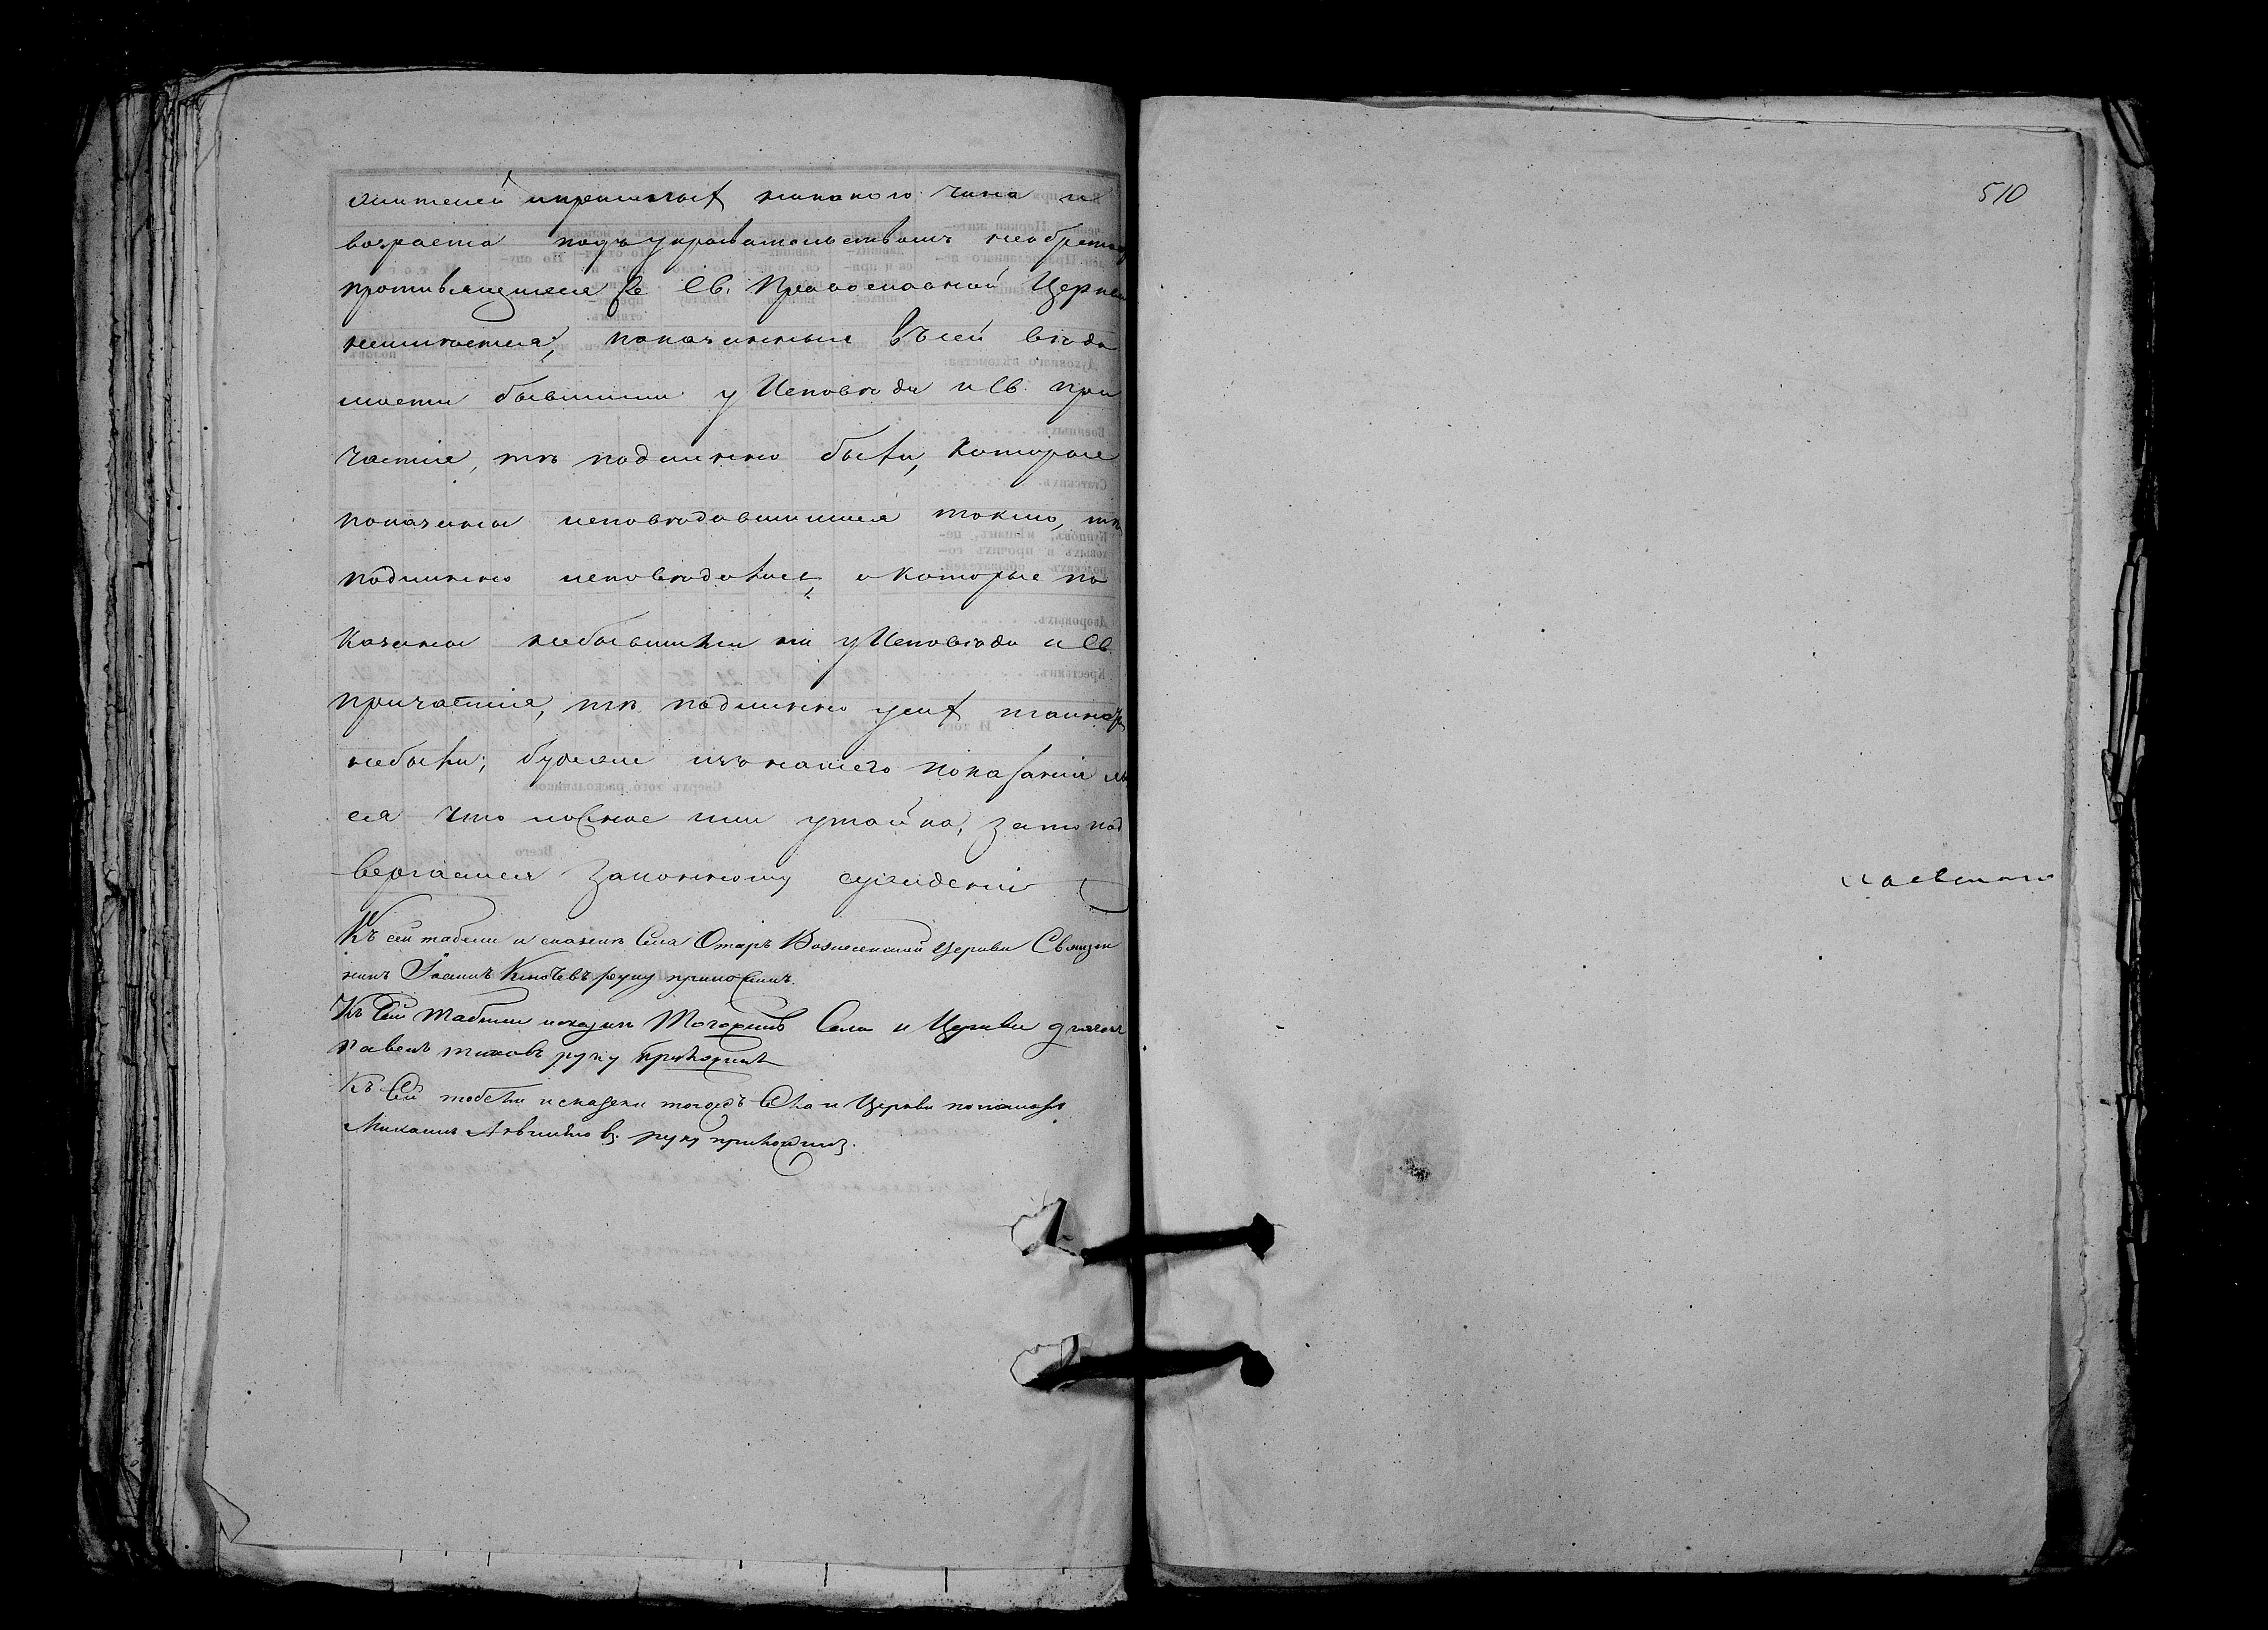 жителей и пришлыхъ никакого чина и
возраста подъ укрывательствомъ необрета
противляющихся же Св. Православной Церкви
неимеется; показанные въ сей ведо
мости бывшими у Исповѣди и Св. При
частія, тѣ подлинно были, которые
показаны исповѣдавшимися токмо, тѣ
подлинно исповѣдались, а которые по
казаны небывшими ни у Исповѣди и Св.
причастія, тѣ подлинно у сихъ таинствъ
небыли; буде же изъ нашего показанія
ся что ложное или утайка, за то под
вергаемся законному сужденію
Къ сей табели и сказкѣ Села Отаръ Вознесенской Церкви Священ
никъ Іоаннъ руку приложилъ.
Къ Сей табели и сказкѣ Тогожъ Села и Церкви дьячокъ
Павелъ руку приложилъ
Къ Сей табели и сказки тогожъ Села и Церкви пономарь
Михаилъ руку приложилъ.
510